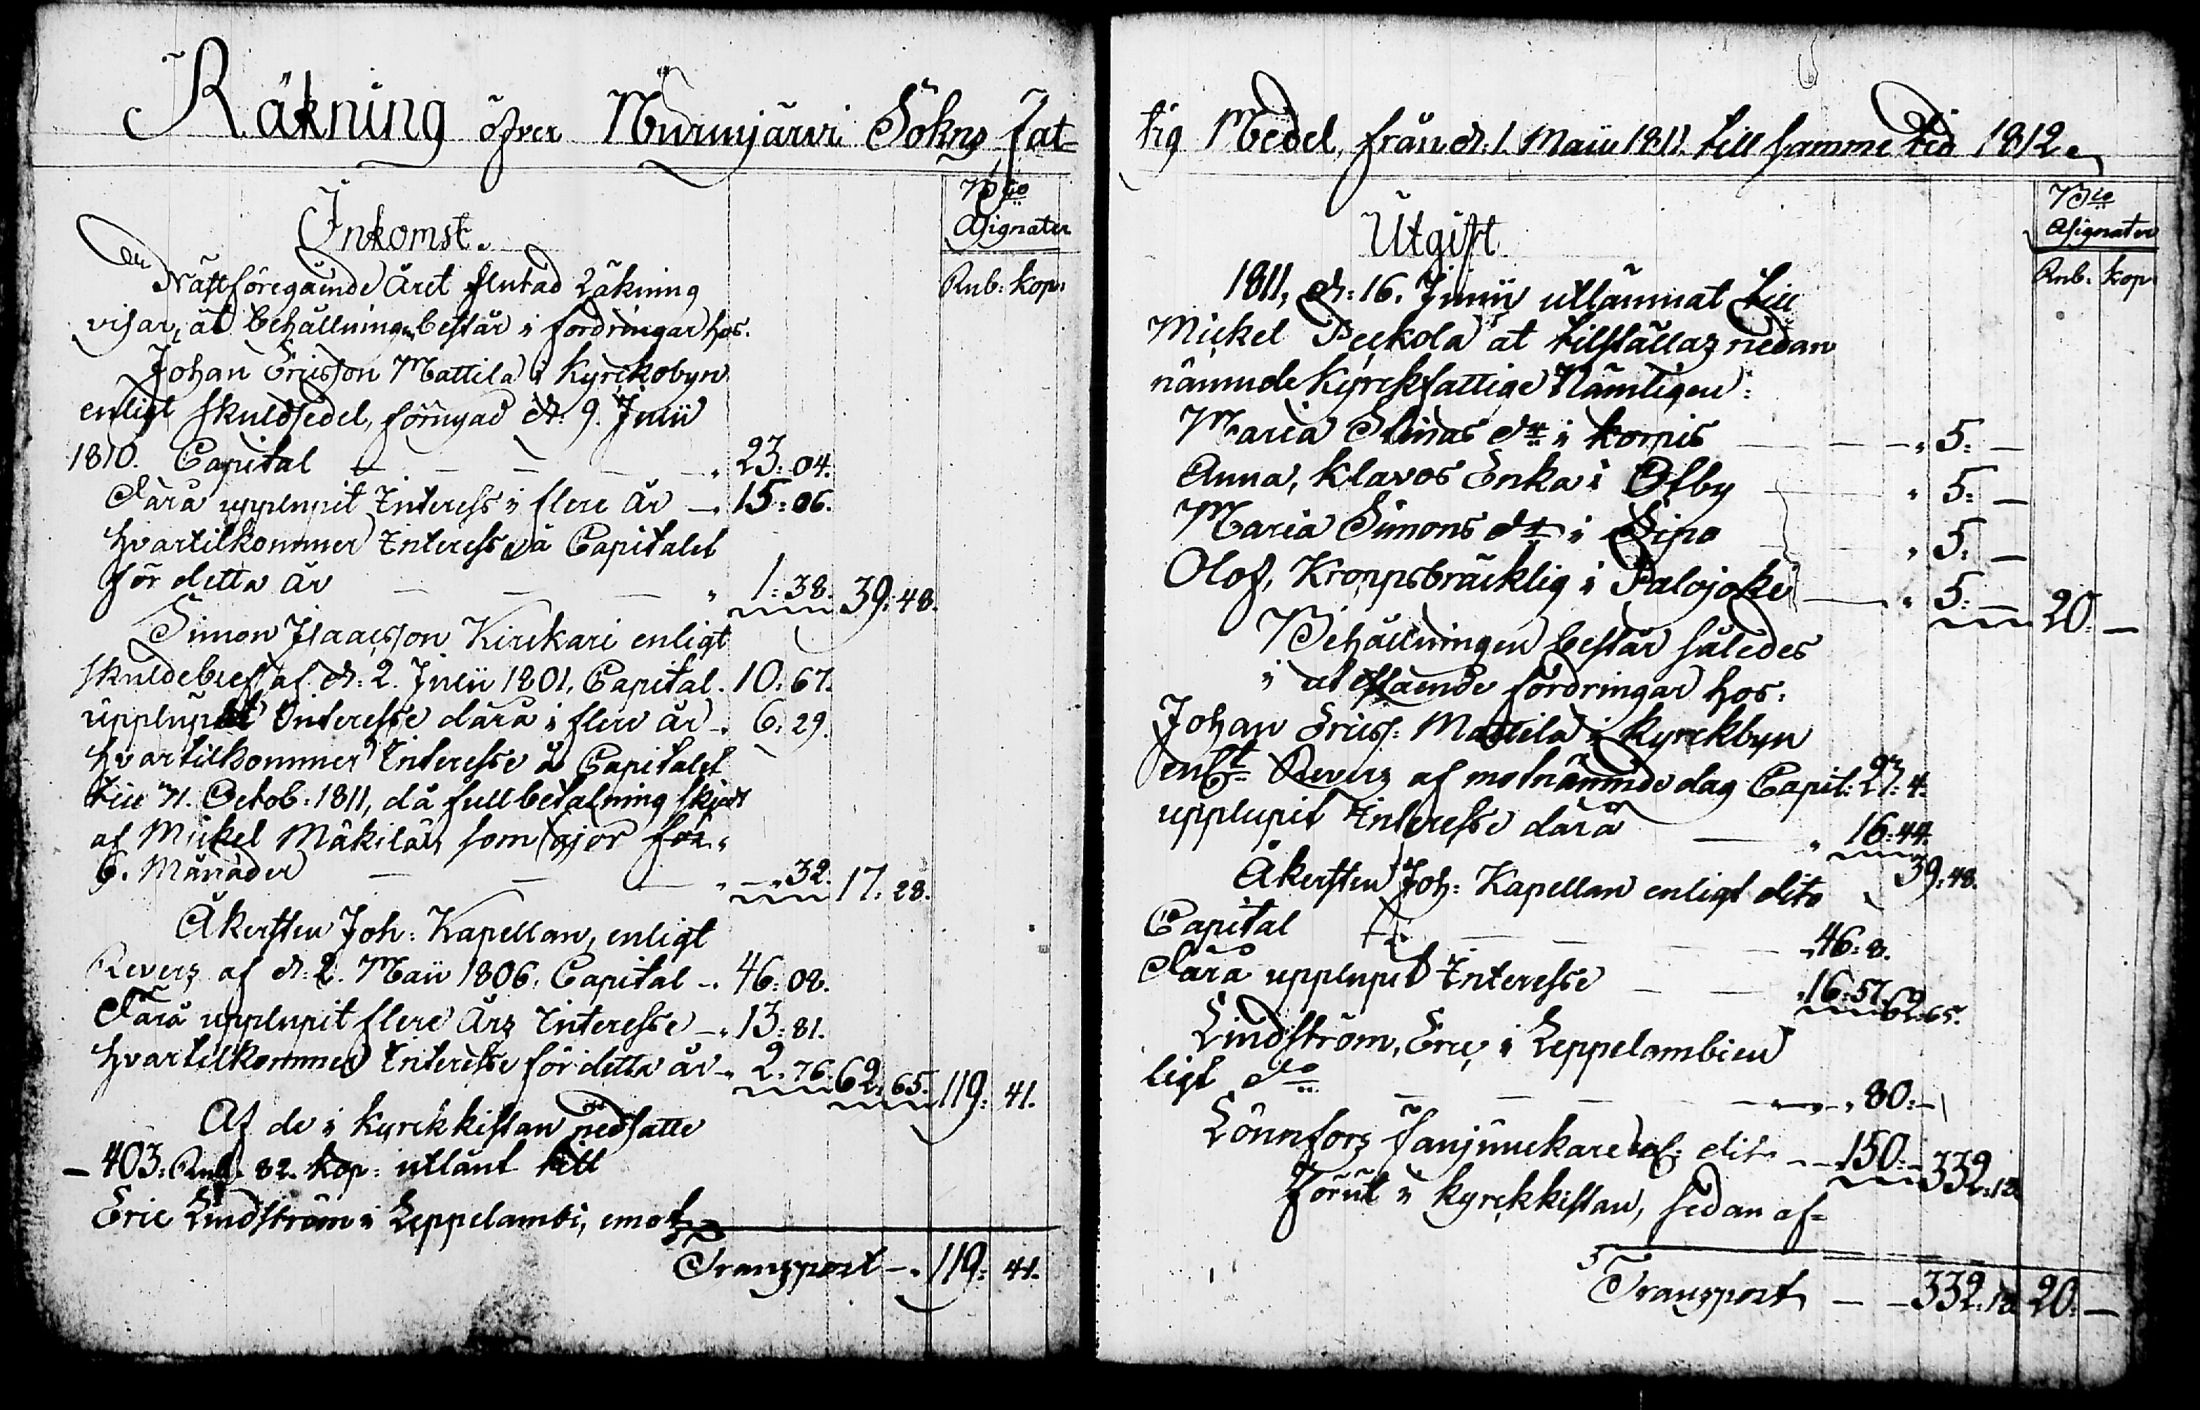 Räkning öfver Nurmjärvi Sokns Fat=
Bco
Assignater
Inkomst.
Rub: kop:
Den Nästföregående Året slutad Räkning
visar, at behållningen består i fordringar hos.
Johan Ericsson Mattila i Kyrckobyn
enligt skuldsedel, förnyad d. 9. Junii
1810. Capital — — — 23: 04.
Dära upplupit Interess i flere år — 15: 06.
hvartilkommer Interess på Capitalet
för detta år — — — 1: 38. 39: 48.
Simon Isaacsson Kirckari enligt
skuldebref af d: 2. Junii 1801, Capital. 10: 67.
upplupet Interesse därå i flere år — 6: 29.
hvartilkommer Interesse å Capitalet
till 71. Octob: 1811, då full betalning skjedt
af Mickel Mäkilä, som gjör för
6. Månader — — — 32. 17: 28.
Åkersten Joh: Kapellan, enligt
Revers af d: 2. Maii 1806. Capital — 46: 08.
Därå upplupit flere Års Interesse — 13: 81.
hvartilkommer Interesse för detta år — 2: 76. 62: 65. 119: 41.
Af de i kyrckkistan nedsatte
— 403: Rub: 82. kop: utlänt till
Eric Lindström i Leppelambi, emot
Transport — 119: 41.
tig Medel, från d: 1. Maii 1811. till samme tid 1812.
Bco
Assignater
Utgift
Rub: kop
1811, d: 16. Junii utlämnat till
Mickel Peckola at tillställas nedan
nämnde kyrckfattige Nämligen:
Maria Stinas dr i korpis — — 5: —
Anna, Klavos Enka i Ofby — 5: —
Maria Simons dr i Sipo — 5: —
Olof, Kroppsbräcklig i Palojoki — 5: — 20: —
Behållningen består således
i utestående fordringar hos:
Johan Ericss: Mattila i kyrckbyn
enlt Revers af motnämnde dag Capit: 23: 4.
upplupit Interesse därå — 16: 44.
39: 48.
Åkersten Joh: Kapellan enligt dito
Capital — — — 46: 8.
Därå upplupit Interesse — — 16: 57. 62: 65.
Lindström, Eric, i Leppelambi en
ligt do — — — 80: —
Lönnfors Fanjunckare af: dito — 150: — 332: 13
Förut i kyrckkistan, sedan af=
Transport — — 332: 13 20: —